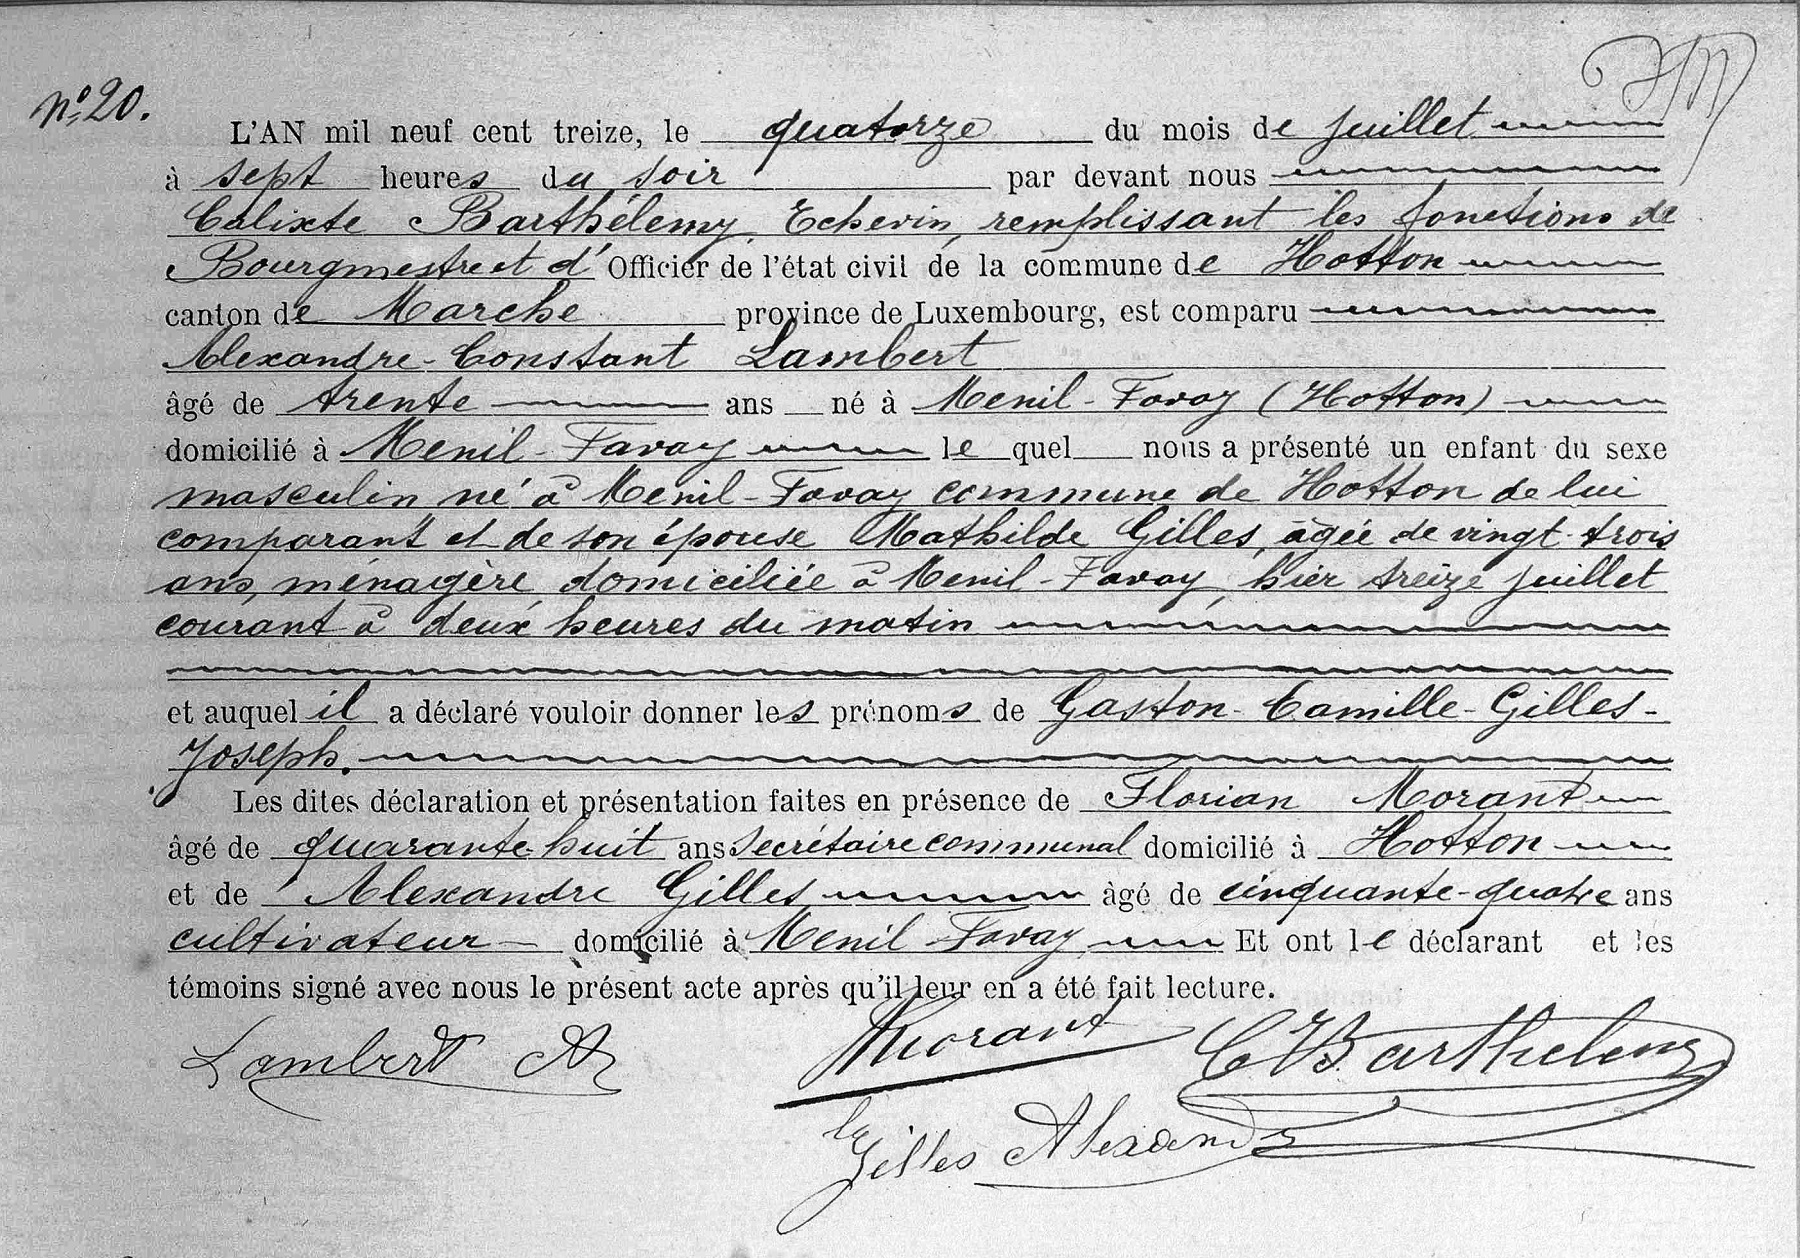 nº 20.
L'AN mil neuf cent treize, le quatorze du mois de juillet
à sept heures du soir par devant nous
Calixte Barthélemy, Echevin, remplissant les fonctions de
Bourgmestre et d' Officier de l'état civil de la commune de Hotton
canton de Marche province de Luxembourg, est comparu
Alexandre-Constant Lambert
âgé de trente ans né à Menil-Favay (Hotton)
domicilié à Menil-Favay le quel nous a présenté un enfant du sexe
masculin né à Menil-Favay commune de Hotton de lui
comparant et de son épouse Mathilde Gilles, âgée de vingt-trois
ans, ménagère, domiciliée à Menil-Favay, hier treize juillet
courant à deux heures du matin
et auquel il a déclaré vouloir donner les prénoms de Gaston-Camille-Gilles-
Joseph.
Les dites déclaration et présentation faites en présence de Florian Morant
âgé de quarante-huit ans secrétaire communal domicilié à Hotton
et de Alexandre Gilles âgé de cinquante-quatre ans
cultivateur domicilié à Menil-Favay Et ont le déclarant et les
témoins signé avec nous le présent acte après qu'il leur en a été fait lecture.
Lambert A Morant C Barthelemy
Gilles Alexandre